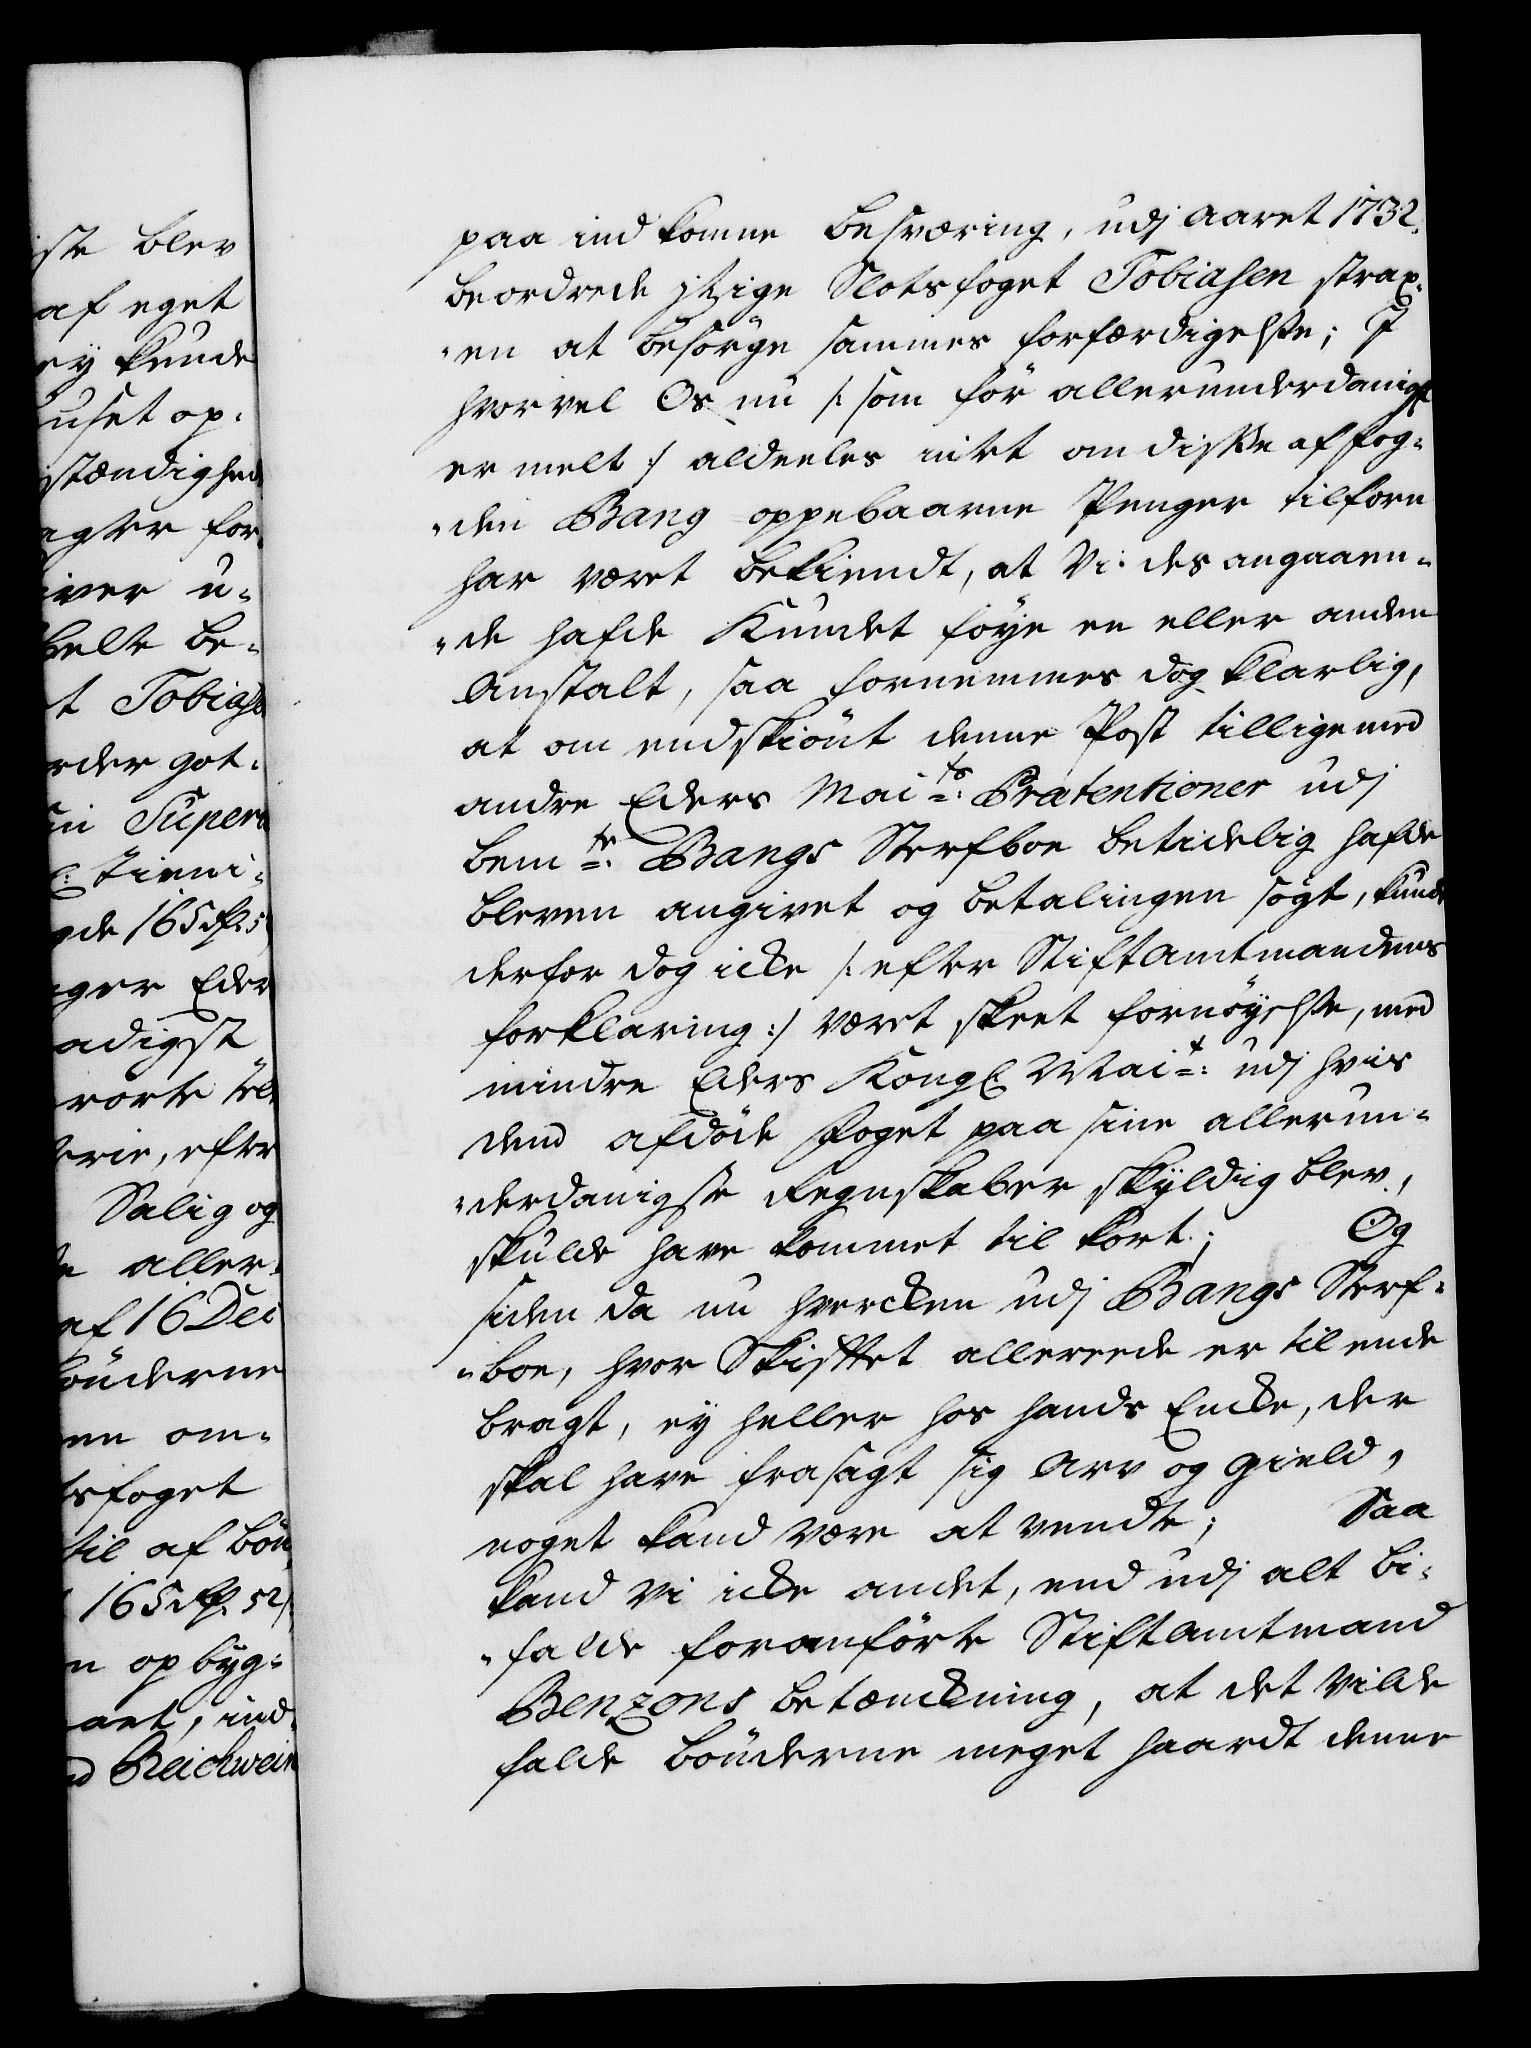 iste blev
af eget
ey kunde
uset op-
stændighed
agter for-
iver u-
helt be-
t Tobiase
rder got-
in Super
tieni-
gde 165
ger Eder
adigst
rörte
erie, efter
Salig og
te aller-
af 16 Dec
bönderne
en om-
tsfoget
til af bön
165
n op byg-
aet, ind-
nd Reichwein
paa ind komne besværing, udj Aaret 1732.
beordrede itzige Slotsfoget Tobiasen strax-
"en at besörge sammes forfærdigelse; I
hvorvel Os nu /: som för allerunderdanigst
er melt :/ aldeeles intet om disse af fog-
"den Bang oppebaarne Penger tilforn
har været bekiendt, at Vi des angaaen-
"de hafde Kundet föye en eller anden
Anstalt, saa fornemmes dog klarlig,
at om endskiönt denne Post tilligemed
andre Eders Maits: Prætentioner udj
bemte: Bangs Sterfboe betidelig hafde
bleven angivet og betalingen sögt, kunde
derfor dog icke /: efter Stiftamtmandens
forklaring :/ været skeet fornöyelse, med
mindre Eders Kongl Mait: udj hvis
dend afdöde Foget paa sine allerun-
"derdanigste Regnskaber skyldig blev,
skulde have kommet til kort; Og
siden da nu hvercken udj Bangs Sterf-
"boe, hvor Skiftet allereede er til ende
bragt, ey heller hos hands Encke, der
skal have frasagt sig Arv og gield,
noget kand være at vendte; Saa
kand Vi icke andet, end udj alt bi-
"falde foranförte Stiftamtmand
Benzons betænckning, at det vilde
falde bönderne meget haardt denne